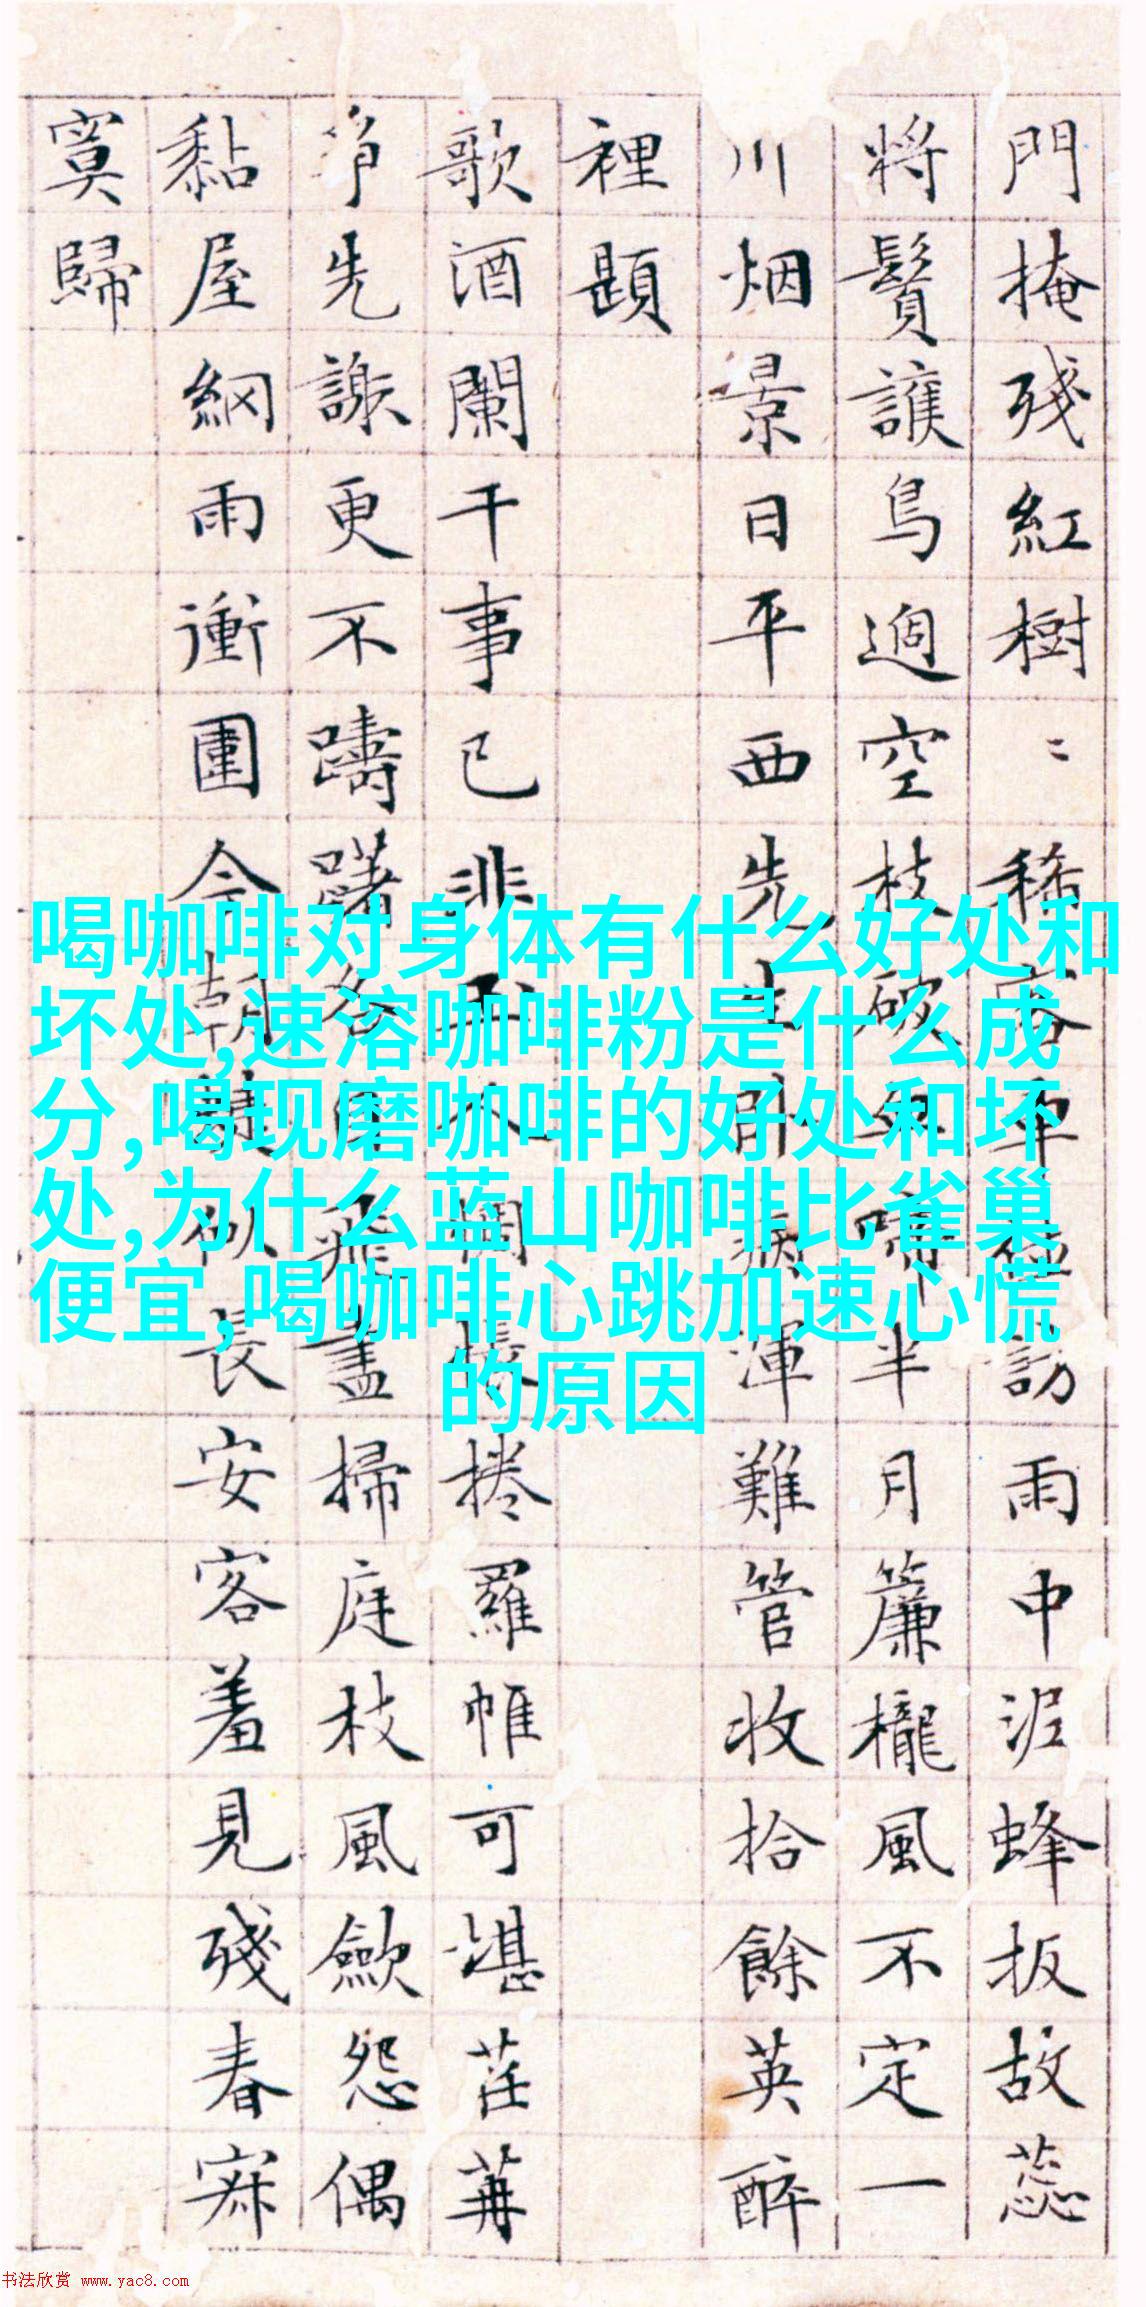 門掩殘紅樹〻稀客車訪雨中泥蜂扳故蕊
將鬚護鳥過空枝破啼半月簾櫳風不定一
川烟景日平西先生病渾難管收拾餘英醉
裡題
歌酒闌干事已非捲羅帷可堪荏苒
爭先謝更不躊躇飛盡掃庭枝風歛怨偶
黏屋網雨衝圍今朝長安客羞見殘春寂
寞歸
喝咖啡对身体有什么好处和
坏处,速溶咖啡粉是什么成
分,喝现磨咖啡的好处和坏
处,为什么蓝山咖啡比雀巢
便宜,喝咖啡心跳加速心慌
的原因
书法欣赏 www.yac8.com